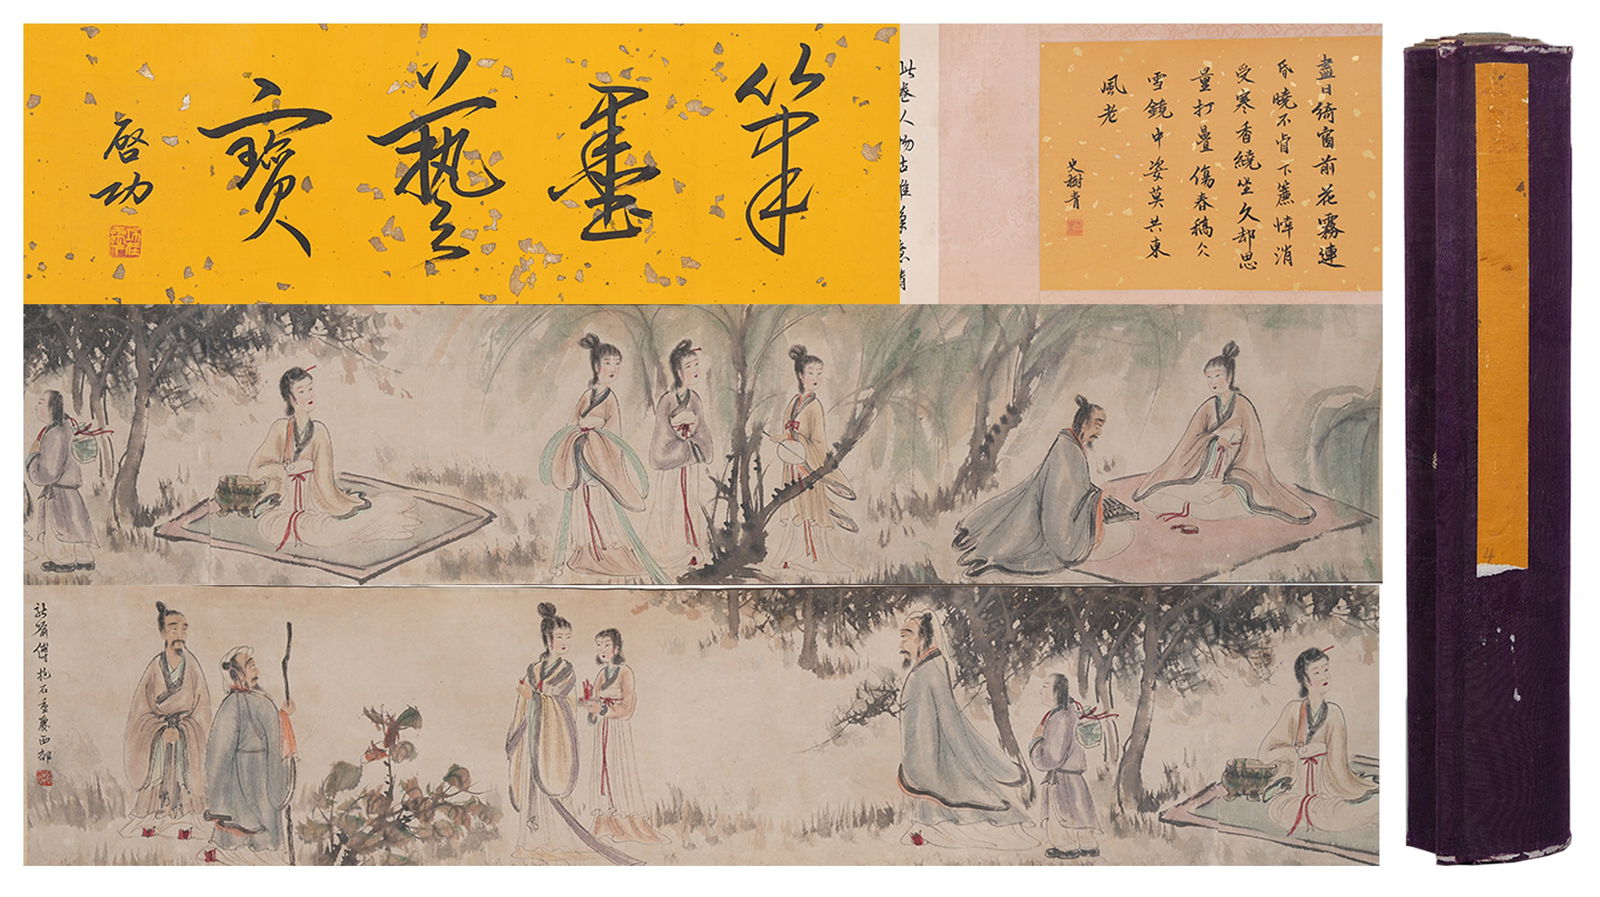 盡日綺窗前花霧連
昏曉不肯下簾幃消
受寒香繞坐久却思
量打疊傷春稿仌
雪鏡中姿莫共東
風老
史樹青
此卷人物古雅
筆墨藝寶
啓功
新喻傅抱石重慶西郊